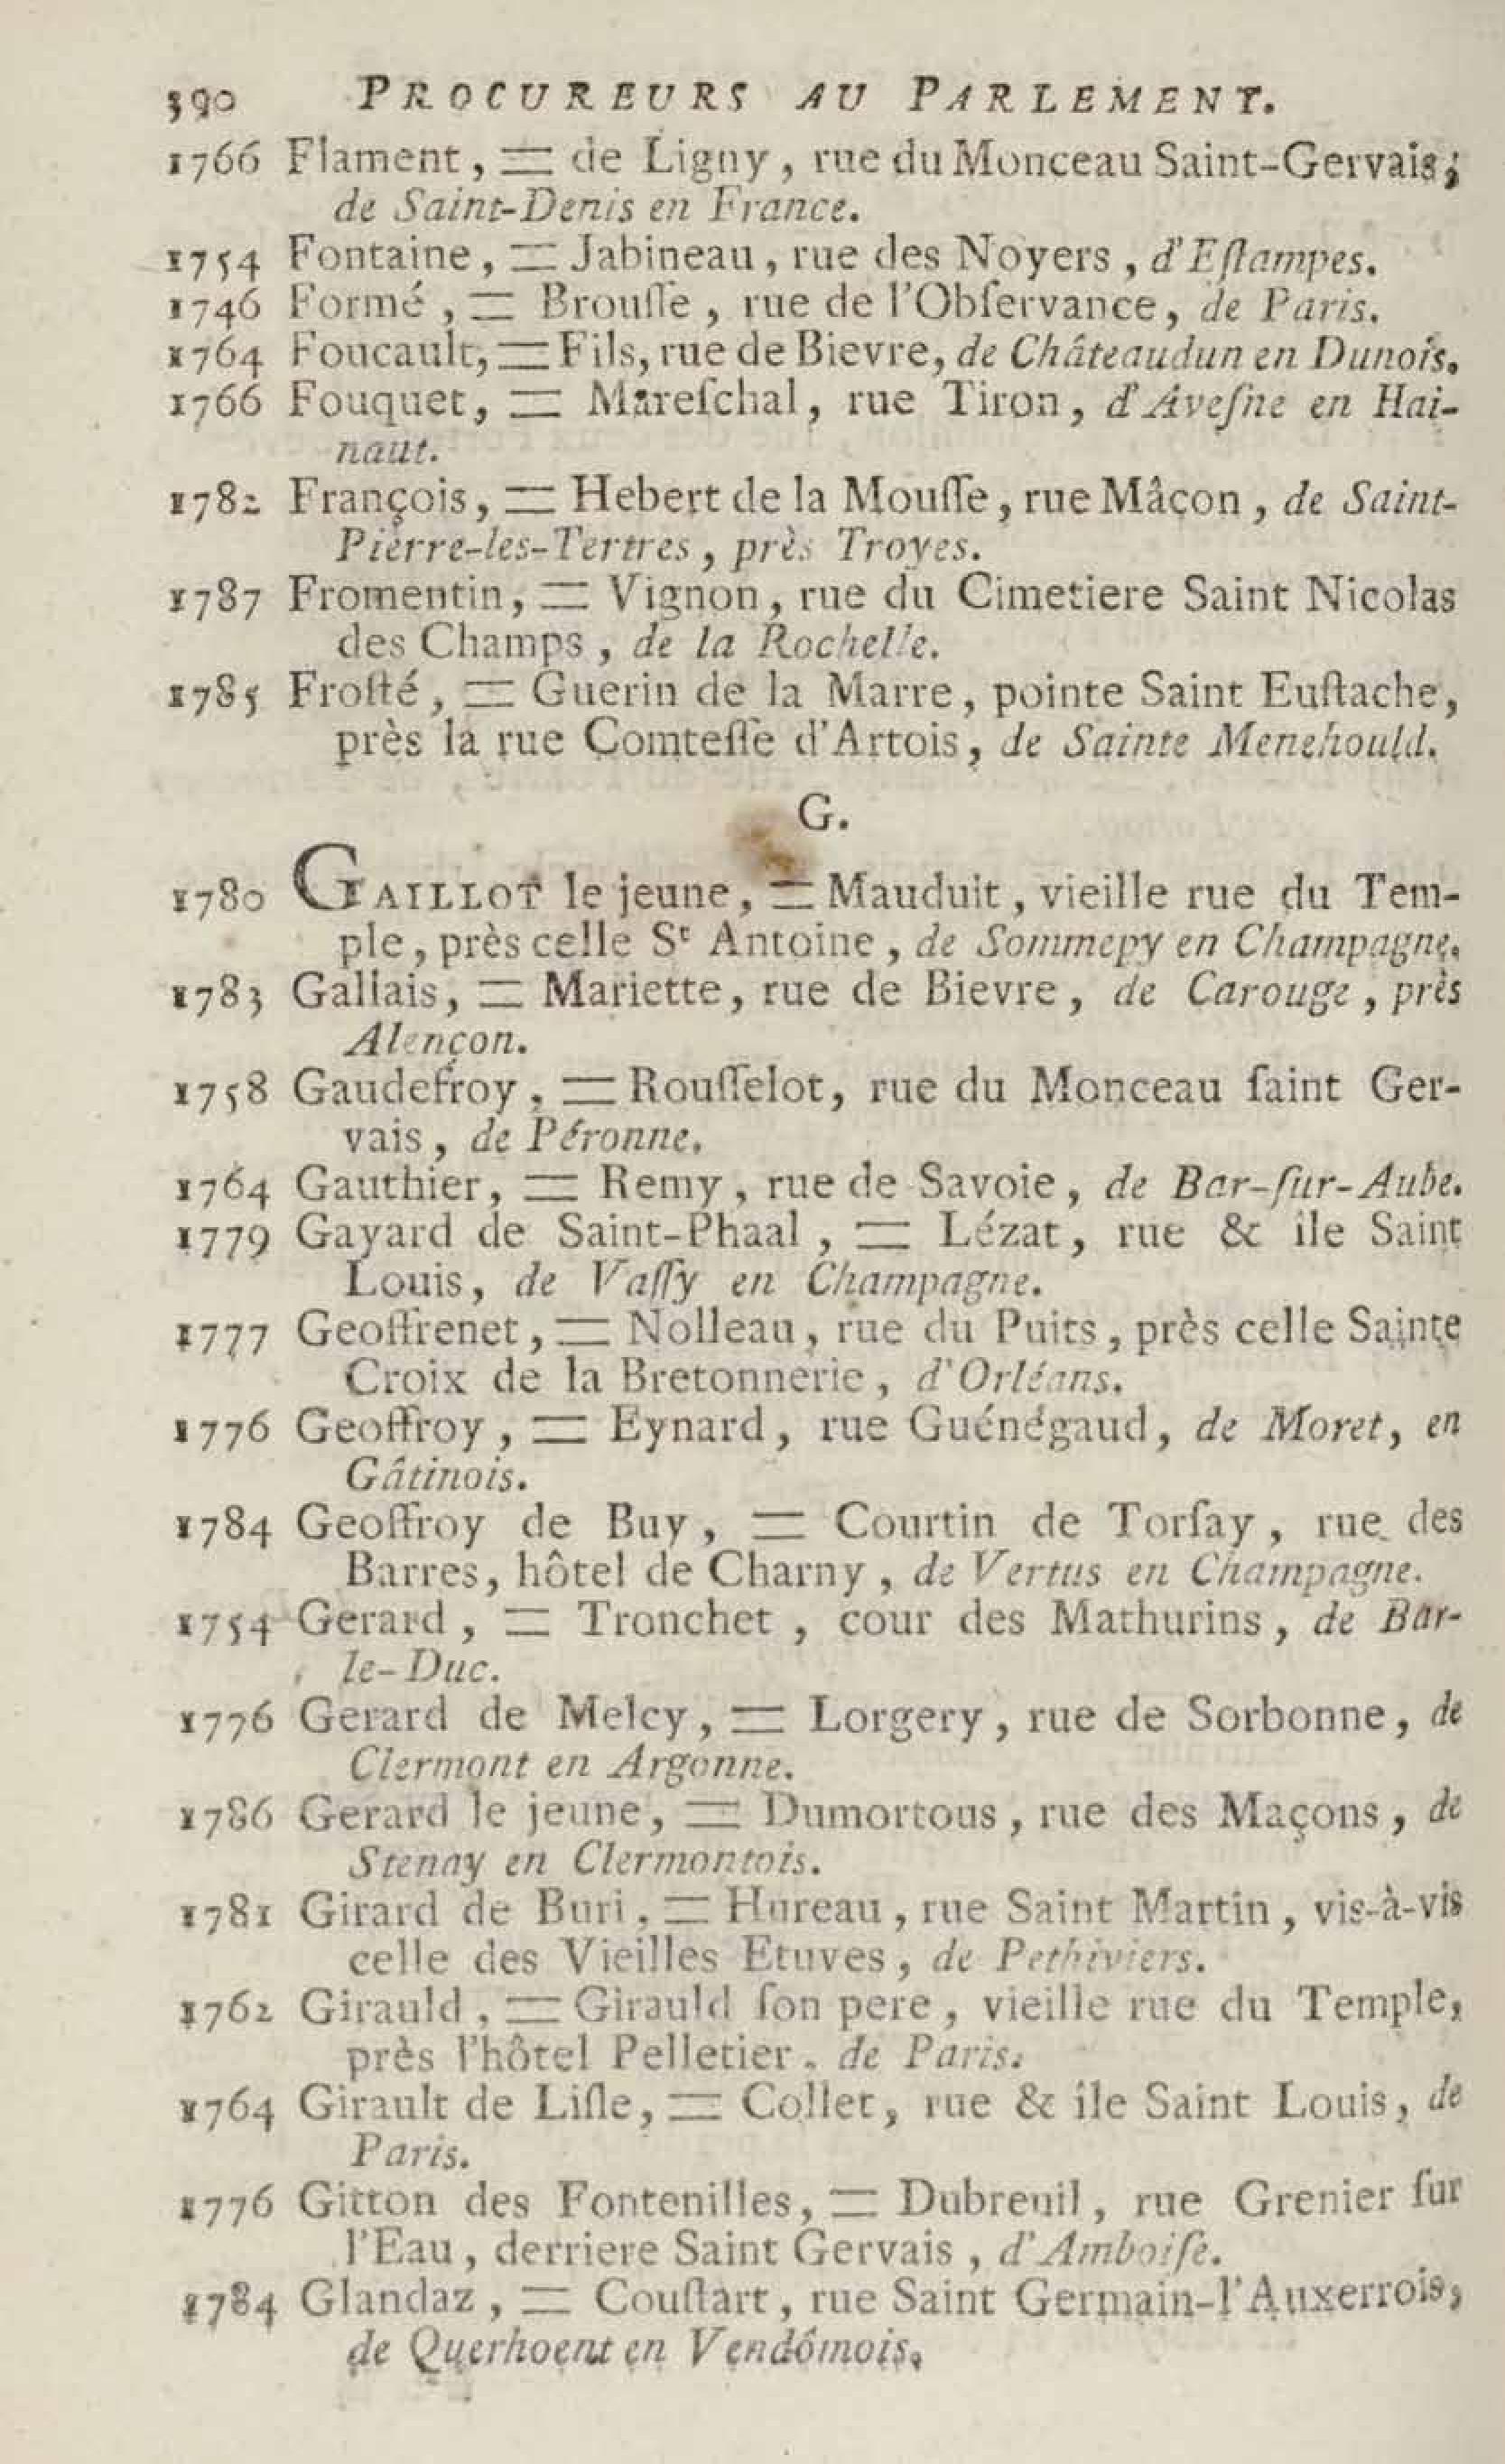 390 PROCUREURS AU PARLEMENT.
1766 Flament, = de Ligny, rue du Monceau Saint-Gervais;
de Saint-Denis en France.
1754 Fontaine, = Jabineau, rue des Noyers, d'Eſtampes.
1746 Formé, = Brouſſe, rue de l'Obſervance, de Paris.
1764 Foucault, = Fils, rue de Bievre, de Châteaudun en Dunois.
1766 Fouquet, = Mareſchal, rue Tiron, d'Aveſne en Hai-
naut.
1782 François, = Hebert de la Mouſſe, rue Mâçon, de Saint-
Pierre-les-Tertres, près Troyes.
1787 Fromentin, = Vignon, rue du Cimetiere Saint Nicolas
des Champs, de la Rochelle.
1785 Froſté, = Guerin de la Marre, pointe Saint Euſtache,
près la rue Comteſſe d'Artois, de Sainte Menehould.
G.
1780 GAILLOT le jeune, = Mauduit, vieille rue du Tem-
ple, près celle St Antoine, de Sommepy en Champagne.
1783 Gallais, = Mariette, rue de Bievre, de Carouge, près
Alençon.
1758 Gaudefroy, = Rouſſelot, rue du Monceau ſaint Ger-
vais, de Péronne.
1764 Gauthier, = Remy, rue de Savoie, de Bar-ſur-Aube.
1779 Gayard de Saint-Phaal, = Lézat, rue & île Saint
Louis, de Vaſſy en Champagne.
1777 Geoffrenet, = Nolleau, rue du Puits, près celle Sainte
Croix de la Bretonnerie, d'Orléans.
1776 Geoffroy, = Eynard, rue Guénégaud, de Moret, en
Gâtinois.
1784 Geoffroy de Buy, = Courtin de Torſay, rue des
Barres, hôtel de Charny, de Vertus en Champagne.
1754 Gerard, = Tronchet, cour des Mathurins, de Bar-
le-Duc.
1776 Gerard de Melcy, = Lorgery, rue de Sorbonne, de
Clermont en Argonne.
1786 Gerard le jeune, = Dumortous, rue des Maçons, de
Stenay en Clermontois.
1781 Girard de Buri, = Hureau, rue Saint Martin, vis-à-vis
celle des Vieilles Etuves, de Pethiviers.
1762 Girauld, = Girauld ſon pere, vieille rue du Temple,
près l'hôtel Pelletier, de Paris.
1764 Girault de Liſle, = Collet, rue & île Saint Louis, de
Paris.
1776 Gitton des Fontenilles, = Dubreuil, rue Grenier ſur
l'Eau, derriere Saint Gervais, d'Amboiſe.
1784 Glandaz, = Couſtart, rue Saint Germain-l'Auxerrois,
de Querhoent en Vendômois.